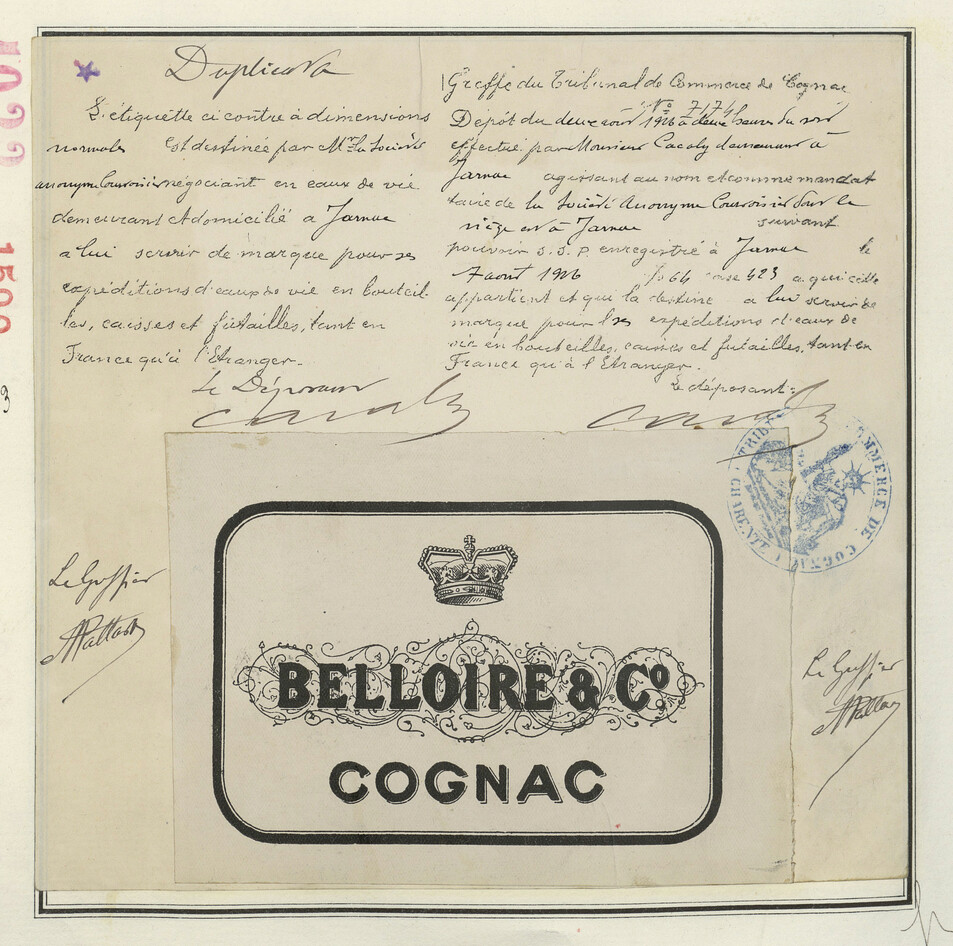 Duplicata
L'étiquette ci contre à dimensions
normales est destinée par Mr La Société
anonyme Courvoisier négociant en eaux de vie
demeurant et domicilié a Jarnac
a lui servir de marque pour ses
expéditions d'eaux de vie en bouteil-
les, caisses et fûtailles, tant en
France qu'à l'Etranger.
Le Déposant
Greffe du Tribunal de Commerce de Cognac
No 7174
Dépôt du deux août 1926 à deux heures du soir
effectué par Monsieur demeurant à
Jarnac agissant au nom et comme mandat
taire de la Société Anonyme Courvoisier dont le
siège est à Jarnac suivant
pouvoir S.S.P. enregistré à Jarnac le
7 aout 1926 fo 64 case 423 a qui elle
appartient et qui la destine a lui servir de
marque pour ses expéditions d'eaux de
vie en bouteilles, caisses et futailles, tant en
France qu'à l'Etranger.
Le déposant
TRIBUNAL COMMERCE DE COGNAC
CHARENTE
Le Greffier
BELLOIRE & Co
COGNAC
Le Greffier
3